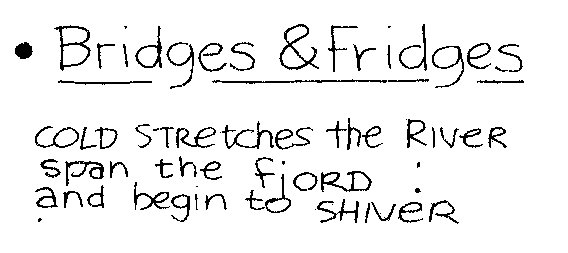 • Bridges & Fridges
COLD STRetches the RIVER
span the fjORD :
and begin to SHIVER